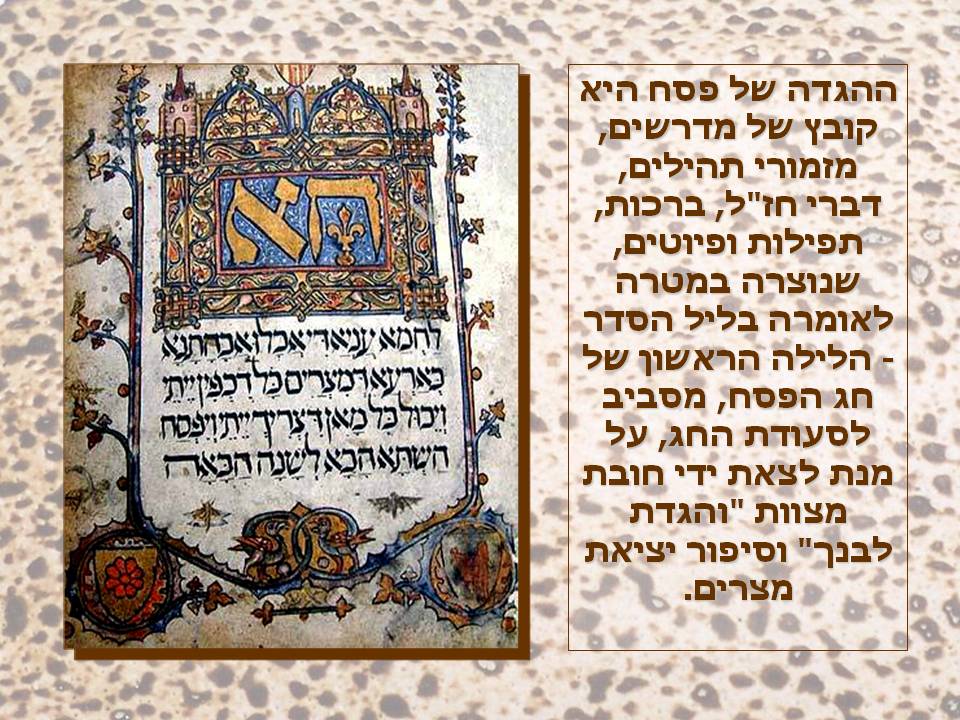 ההגדה של פסח היא
קובץ של מדרשים,
מזמורי תהילים,
דברי חז"ל, ברכות,
תפילות ופיוטים,
שנוצרה במטרה
לאומרה בליל הסדר
- הלילה הראשון של
חג הפסח, מסביב
לסעודת החג, על
מנת לצאת ידי חובת
מצוות "והגדת
לבנך" וסיפור יציאת
מצרים.
הא
לחמא עניא די אכלו אבהתנא
בארעא דמצרים כל דכפין ייתי
ויכול כל מאן דצריך ייתי ויפסח
השתא הכא לשנה הבאה